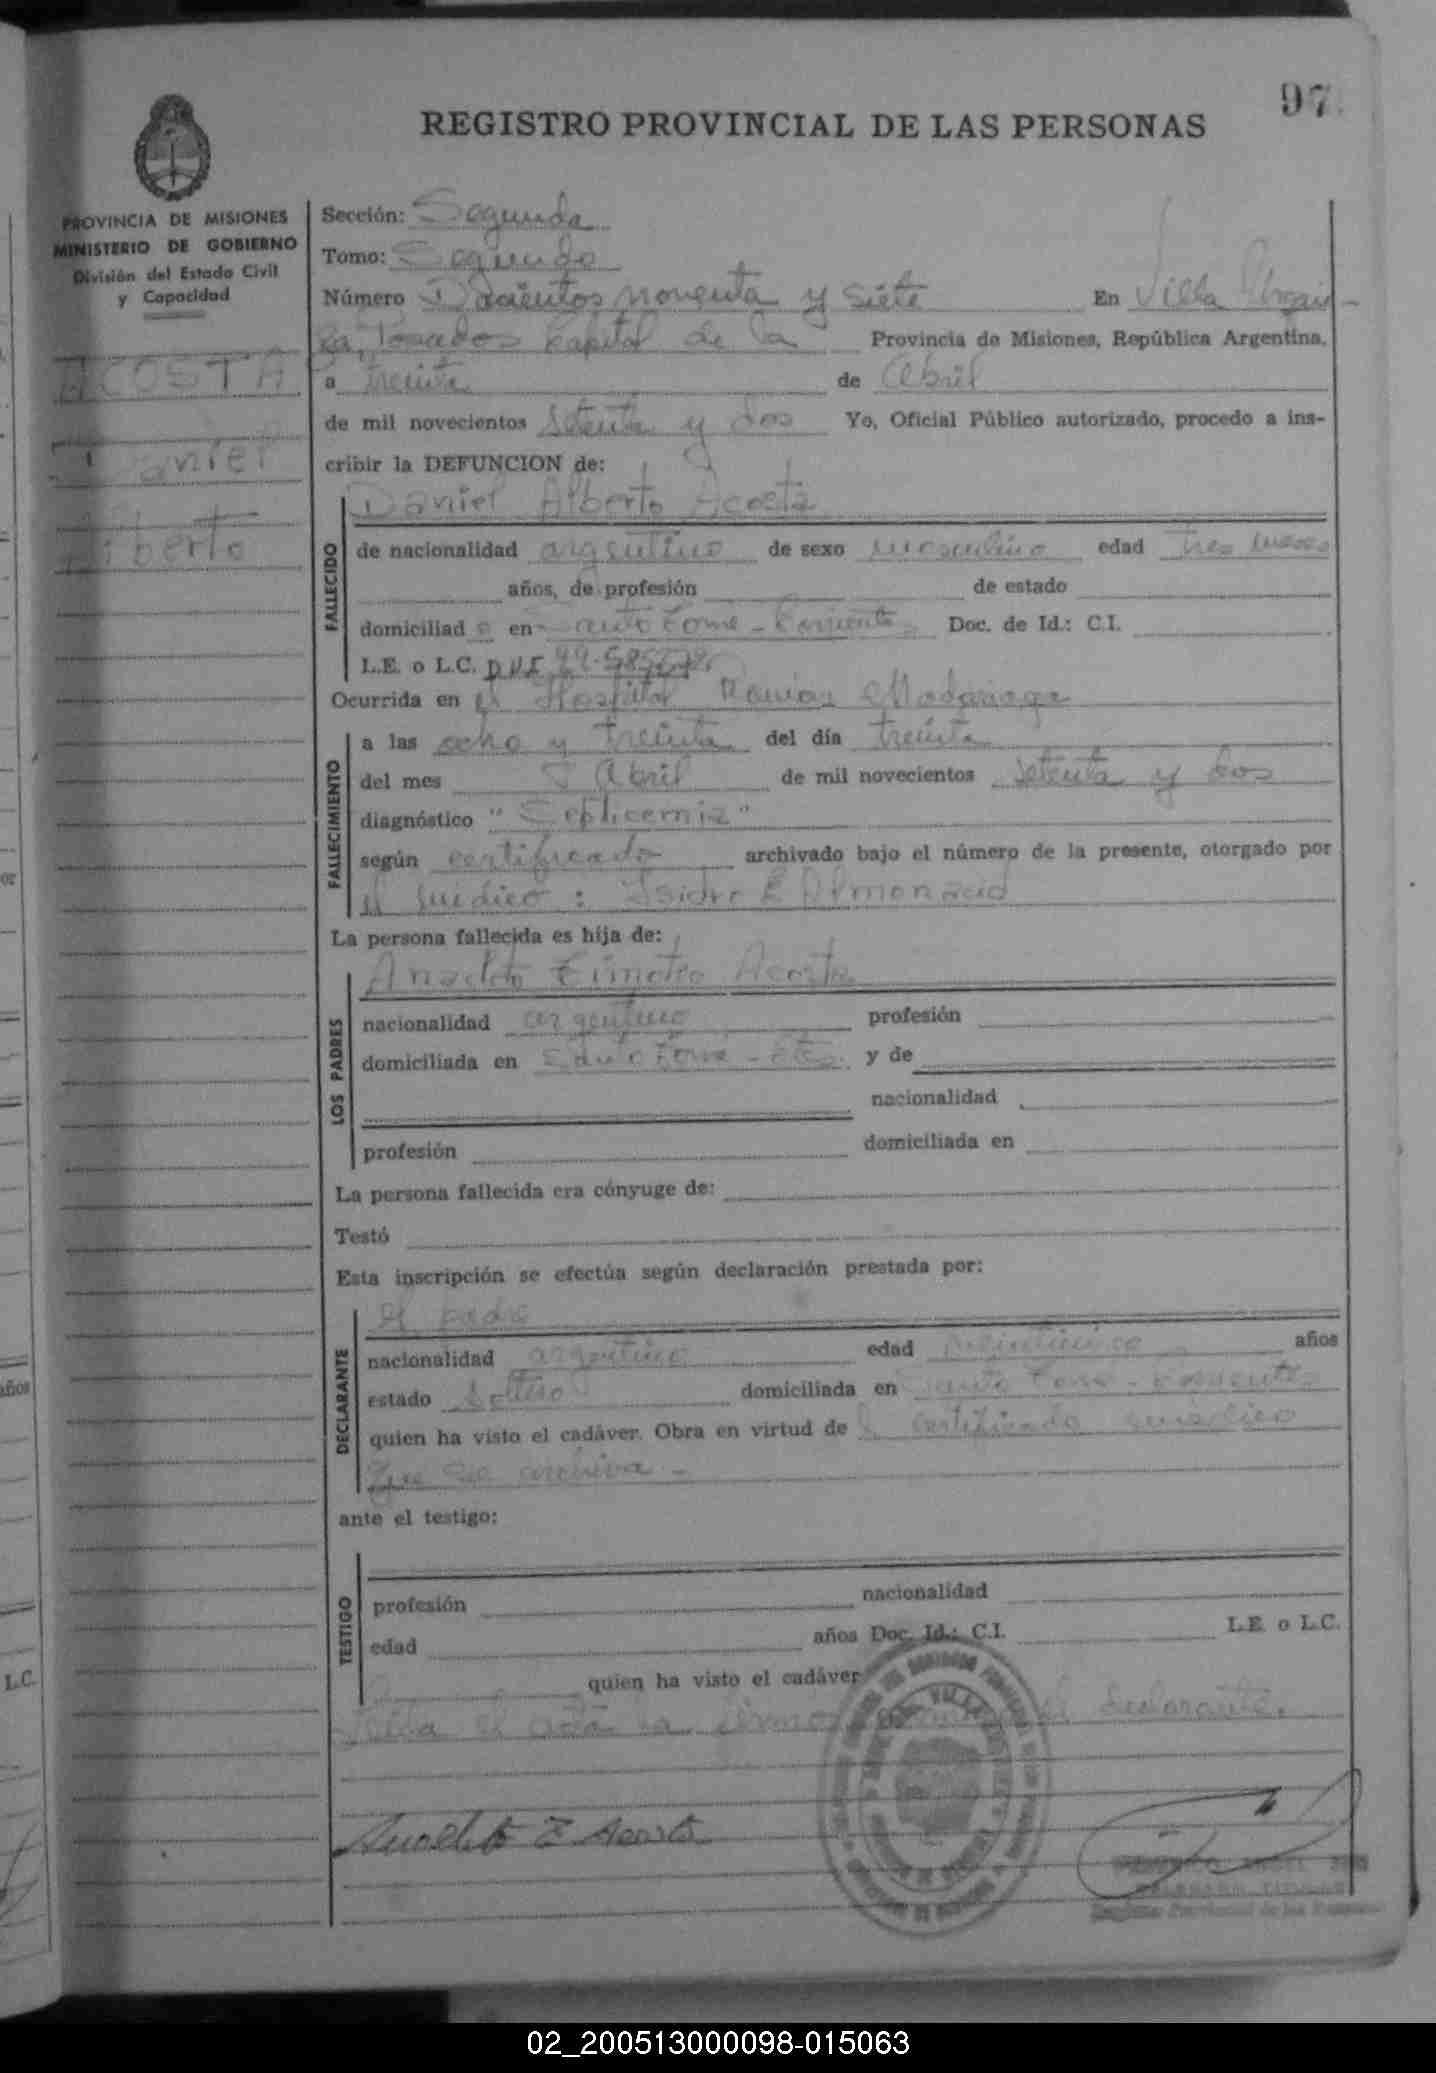 97.
REGISTRO PROVINCIAL DE LAS PERSONAS
PROVINCIA DE MISIONES
MINISTERIO DE GOBIERNO
División del Estado Civil
y Capacidad
ACOSTA
Daniel
Alberto
Sección: Segunda
Tomo: Segundo
Número Doscientos noventa y siete En Villa
Posadas Capital de la Provincia de Misiones, República Argentina,
a treinta de Abril
de mil novecientos setenta y dos Yo, Oficial Público autorizado, procedo a ins-
cribir la DEFUNCION de:
FALLECIDO
Daniel Alberto Acosta
de nacionalidad argentino de sexo masculino edad tres meses
años, de profesión de estado
domiciliad o en Santo Tomé - Corrientes Doc. de Id.: C.I.
L.E. o L.C. DNI
Ocurrida en el Hospital Ramón Madariaga
FALLECIMIENTO
a las ocho y treinta del día treinta
del mes Abril de mil novecientos setenta y dos
diagnóstico "Septicemia"
según certificado archivado bajo el número de la presente, otorgado por
el médico: Isidro E Almonacid
La persona fallecida es hija de:
LOS PADRES
Anacleto Timoteo Acosta
nacionalidad argentino profesión
domiciliada en Santo Tomé - Ctes. y de
nacionalidad
profesión domiciliada en
La persona fallecida era cónyuge de:
Testó
Esta inscripción se efectúa según declaración prestada por:
DECLARANTE
el padre
nacionalidad argentino edad veinticinco años
estado soltero domiciliada en Santo Tomé - Corrientes
quien ha visto el cadáver. Obra en virtud de l certificado médico
que se archiva -
ante el testigo:
TESTIGO
profesión nacionalidad
edad años Doc. Id.: C.I. L.E. o L.C.
quien ha visto el cadáver
el acta la el declarante.
Anacleto T Acosta
Registro Provincial de las Personas
años
L.C.
02_200513000098-015063